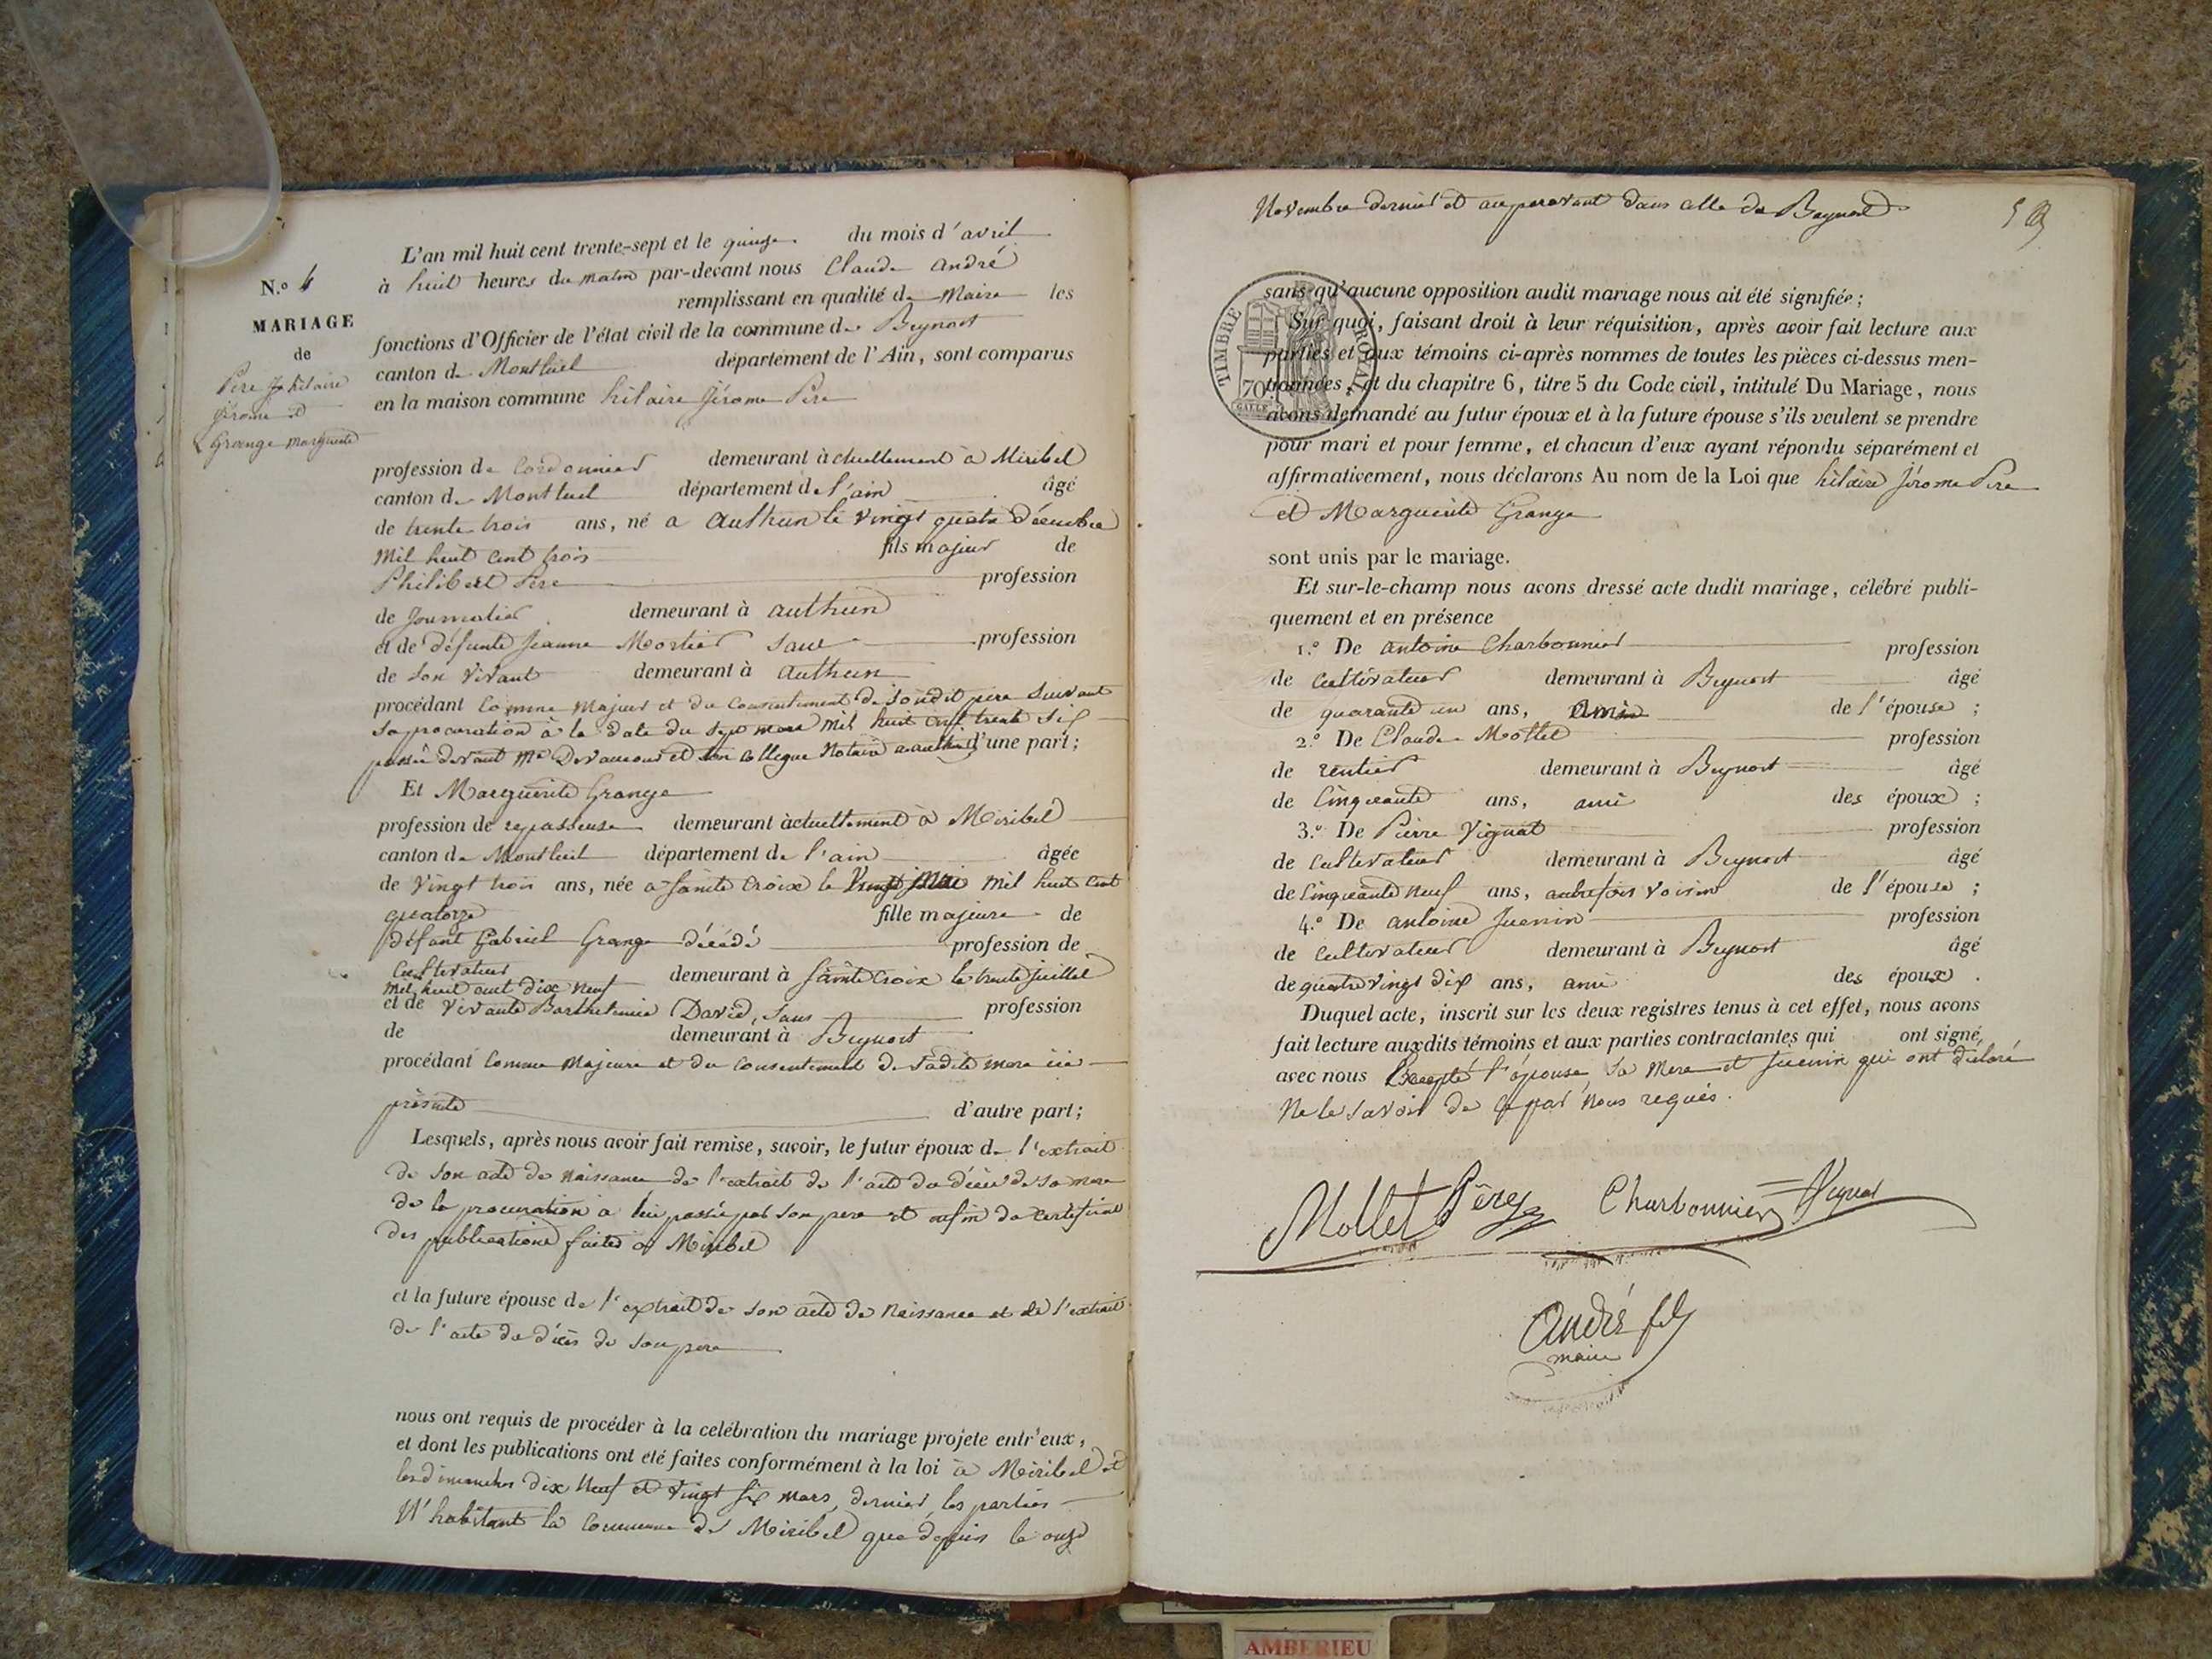 L'an mil huit cent trente-sept et le quinze du mois d'avril
à huit heures du matin par-devant nous Claude André
remplissant en qualité de Maire les
fonctions d'Officier de l'état civil de la commune de Beynost
canton de Montluel département de l'Ain, sont comparus
en la maison commune hilaire Jérome Père
N.º 4
MARIAGE
de
Père hilaire
Jérome et
Grange marguerite
profession de Cordonnier demeurant actuellement à Miribel
canton de Montluel département de l'ain âgé
de trente trois ans, né a Authun le vingt quatre décembre
mil huit cent trois fils majeur de
Philibert Père profession
de Journalier demeurant à authun
et de défunte Jeanne Mortier sans profession
de son vivant demeurant à authun
procédant comme majeur et du consentement de sondit père suivant
sa procuration à la date du sept mars mil huit cent trente six
passée devant Me et son collegue Notaire a authun d'une part;
Et Marguerite Grange
profession de repasseuse demeurant actuellement à Miribel
canton de Montluel département de l'ain âgée
de vingt trois ans, née a Sainte Croix le mil huit cent
quatorze fille majeure de
défunt Gabriel Grange décédé profession de
Cultivateur demeurant à Sainte Croix le trente juillet
mil huit cent dix neuf
et de vivante Barthelemie David, sans profession
de demeurant à Beynost
procédant comme majeure et du consentement de sadite mere ici
présente d'autre part;
Lesquels, après nous avoir fait remise, savoir, le futur époux de l'extrait
de son acte de naissance de l'extrait de l'acte de décès de sa mere
de la procuration a lui passée par son pere et enfin du certificat
des publications faites à Miribel
et la future épouse de l'extrait de son acte de Naissance et de l'extrait
de l'acte de décès de son pere
nous ont requis de procéder à la celébration du mariage projeté entr'eux,
et dont les publications ont été faites conformément à la loi à Miribel et
les dimanches dix Neuf et vingt six mars dernier, les parties
N'habitant la commune de Miribel que depuis le onze
Novembre dernier et auparavant dans celle de Beynost
sans qu'aucune opposition audit mariage nous ait été signifiée;
Sur quoi, faisant droit à leur réquisition, après avoir fait lecture aux
parties et aux témoins ci-après nommes de toutes les pièces ci-dessus men-
tionnées, et du chapitre 6, titre 5 du Code civil, intitulé Du Mariage, nous
avons demandé au futur époux et à la future épouse s'ils veulent se prendre
pour mari et pour femme, et chacun d'eux ayant répondu séparément et
affirmativement, nous déclarons Au nom de la Loi que hilaire Jérome Père
et Marguerite Grange
TIMBRE ROYAL
70
sont unis par le mariage.
Et sur-le-champ nous avons dressé acte dudit mariage, célébré publi-
quement et en présence
1.º De antoine Charbonnier profession
de Cultivateur demeurant à Beynost âgé
de quarante un ans, ami de l'épouse;
2.º De Claude Mollet profession
de rentier demeurant à Beynost âgé
de Cinquante ans, ami des époux;
3.º De Pierre Vignat profession
de Cultivateur demeurant à Beynost âgé
de Cinquante neuf ans, autrefois voisin de l'épouse;
4.º De antoine Juenin profession
de Cultivateur demeurant à Beynost âgé
de quatre vingt dix ans, ami des époux.
Duquel acte, inscrit sur les deux registres tenus à cet effet, nous avons
fait lecture auxdits témoins et aux parties contractantes qui ont signé,
avec nous Excepté l'épouse, sa mere et Juenin qui ont déclaré
ne le savoir de ce par nous requis.
Mollet Père Charbonnier Vignat
André fils
maire
AMBERIEU